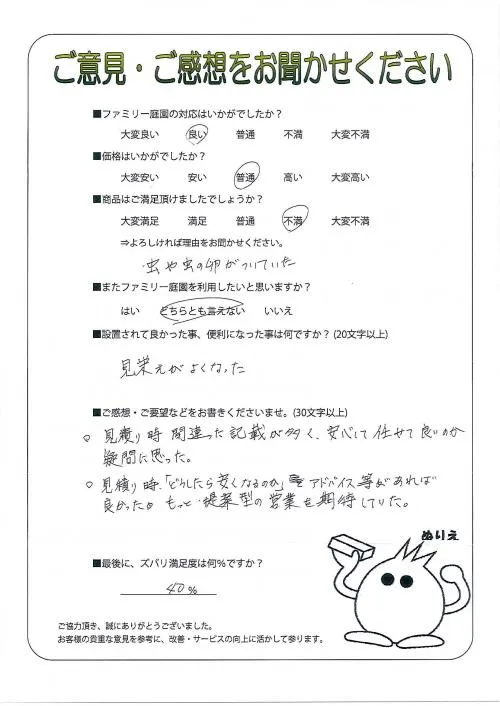 ご意見・ご感想をお聞かせください
■ファミリー庭園の対応はいかがでしたか？
大変良い 良い 普通 不満 大変不満
■価格はいかがでしたか？
大変安い 安い 普通 高い 大変高い
■商品はご満足頂けましたでしょうか？
大変満足 満足 普通 不満 大変不満
⇒よろしければ理由をお聞かせください。
・虫や虫の卵がついていた
■またファミリー庭園を利用したいと思いますか？
はい どちらとも言えない いいえ
■設置されて良かった事、便利になった事は何ですか？(20文字以上)
見栄えがよくなった
■ご感想・ご要望などをお書きくださいませ。(30文字以上)
○ 見積り時 間違った記載が多く、安心して任せて良いのか
疑問に思った。
○ 見積り時、「どうしたら安くなるのか」を アドバイス等があれば
良かった。もっと提案型の営業を期待していた。
ぬりえ
■最後に、ズバリ満足度は何％ですか？
40％
ご協力頂き、誠にありがとうございました。
お客様の貴重な意見を参考に、改善・サービスの向上に活かして参ります。